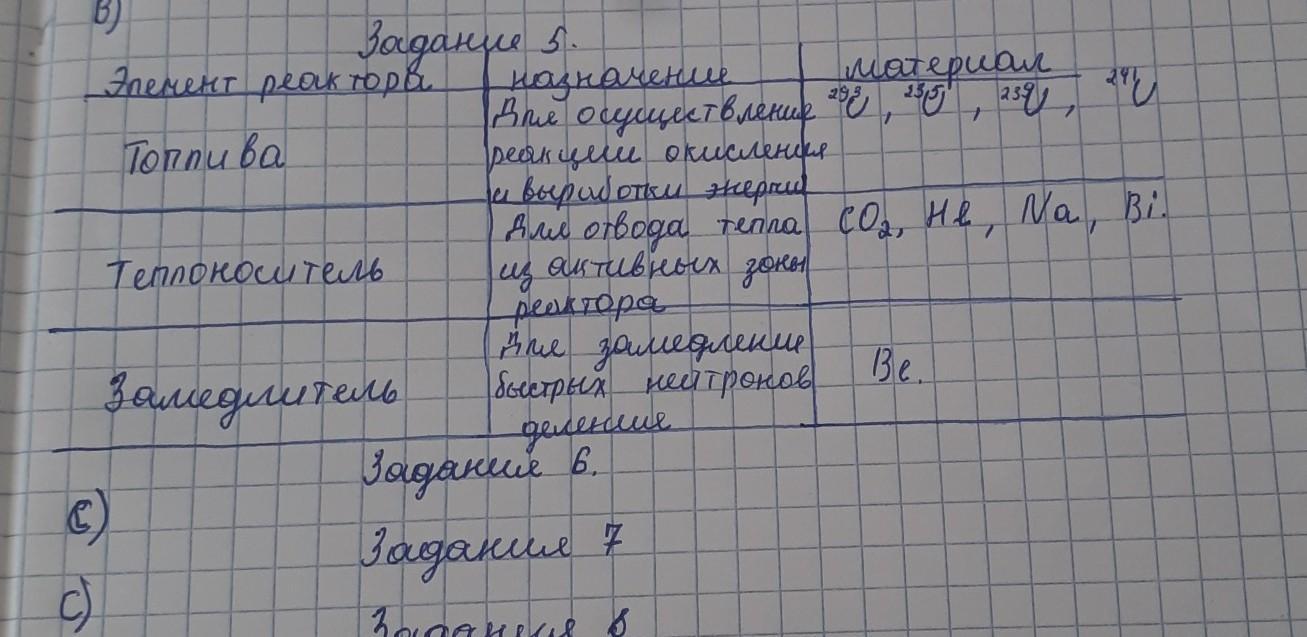 В)
Задание 5.
Элемент реактора назначение материал
Топлива Для осуществление реакции окисления и выработки энергии ²³³U, ²³⁵U, ²³⁹U, ²⁴¹U
Теплоноситель Для отвода тепла из активных зоны реактора CO₂, He, Na, Bi.
Замедлитель Для замедление быстрых нейтронов деление Be.
Задание 6.
С)
Задание 7
С)
Задание 8